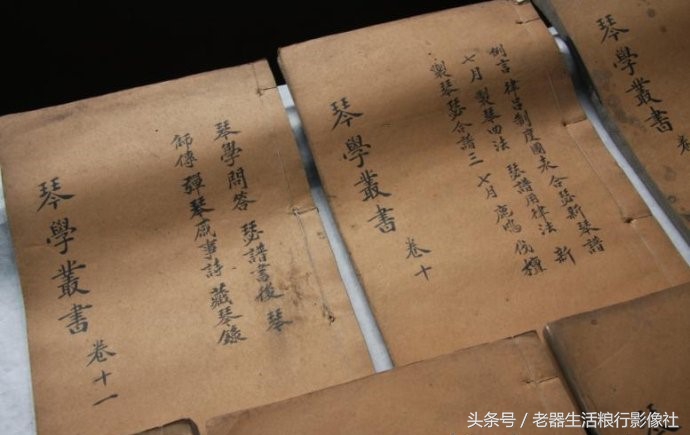 琴學叢書 卷
例言 律呂制度圖表 合瑟新琴譜
七月 製琴四法 瑟譜用律法 新
製琴瑟合譜三 七月 鹿鳴 伐檀
琴學叢書 卷十
琴學問答 瑟譜書後 琴
師傳 彈琴感事詩 藏琴錄
琴學叢書 卷十一
琴
头条号 / 老器生活粮行影像社